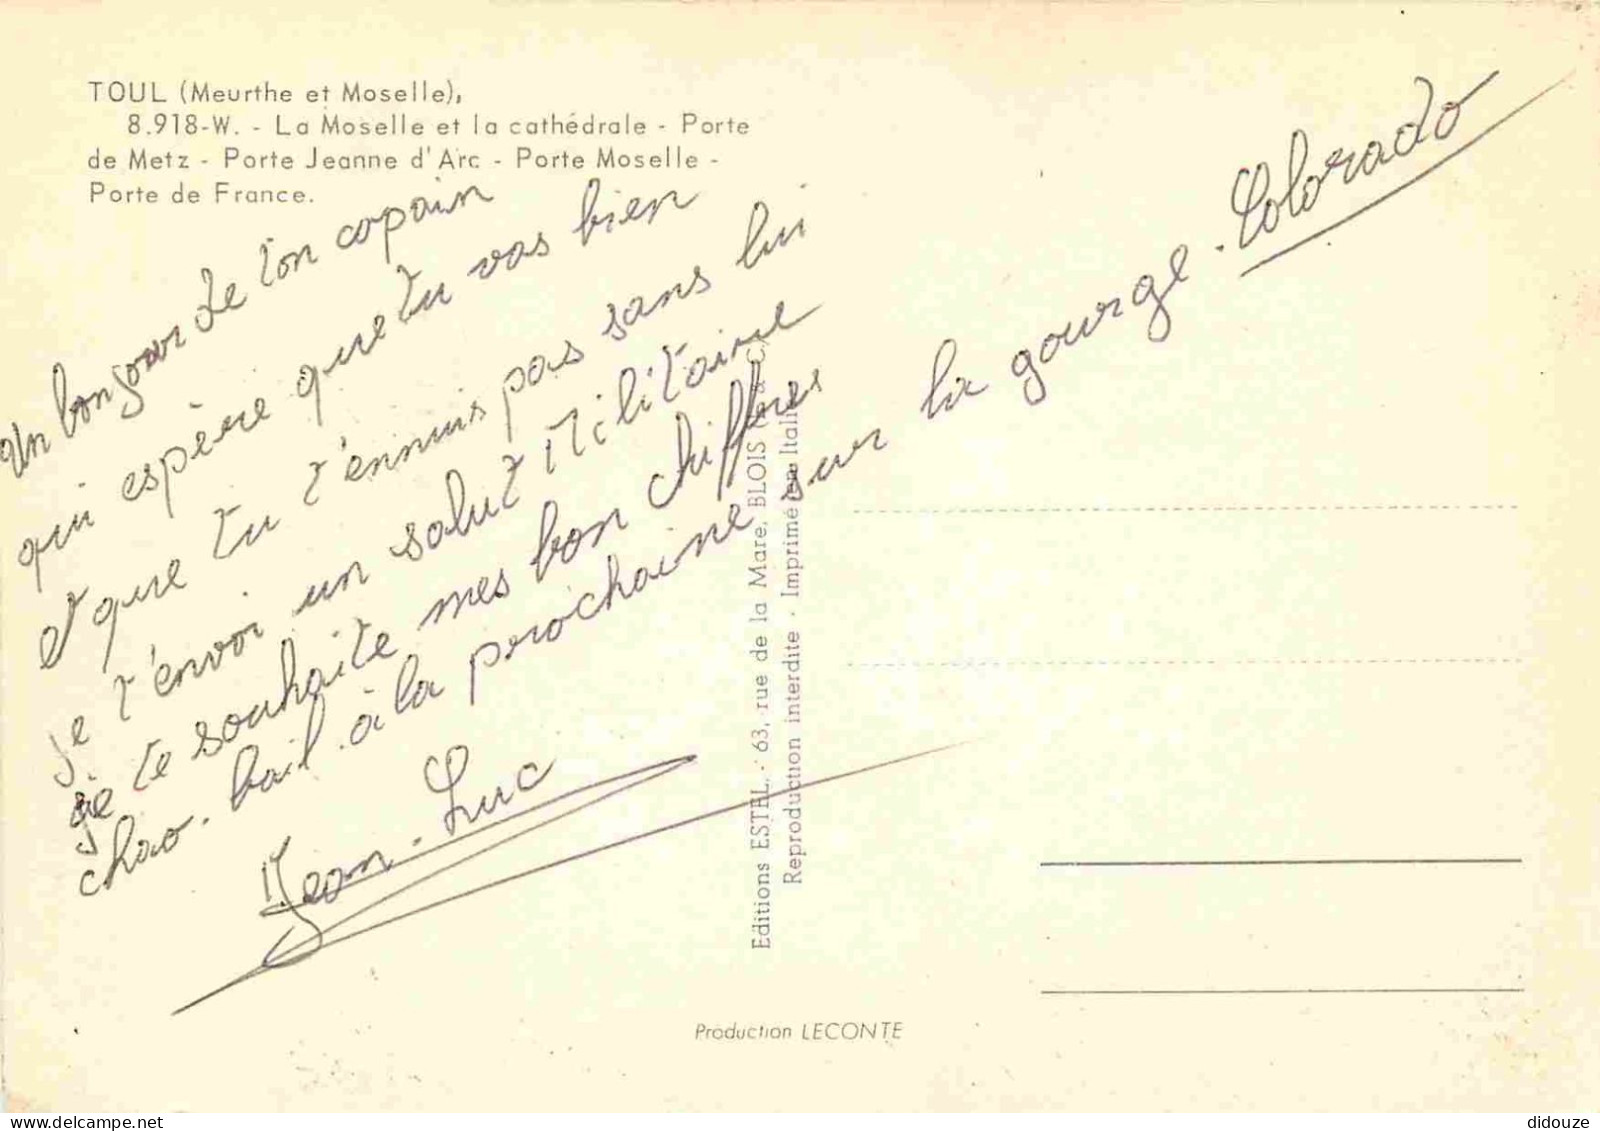 TOUL (Meurthe et Moselle),
8.918-W. - La Moselle et la cathédrale - Porte
de Metz - Porte Jeanne d'Arc - Porte Moselle -
Porte de France.
Un bonjour de ton copain
qui espère que tu vas bien
et que tu t'ennuis pas sans lui
je t'envoi un salut Militaire
je te souhaite mes bon chiffres
chao. bail. à la prochaine sur la gourge. Colorado
Jean-Luc
Editions ESTEL. - 63, rue de la Mare, BLOIS
Reproduction interdite - Imprimé en Itali
Production LECONTE
didouze